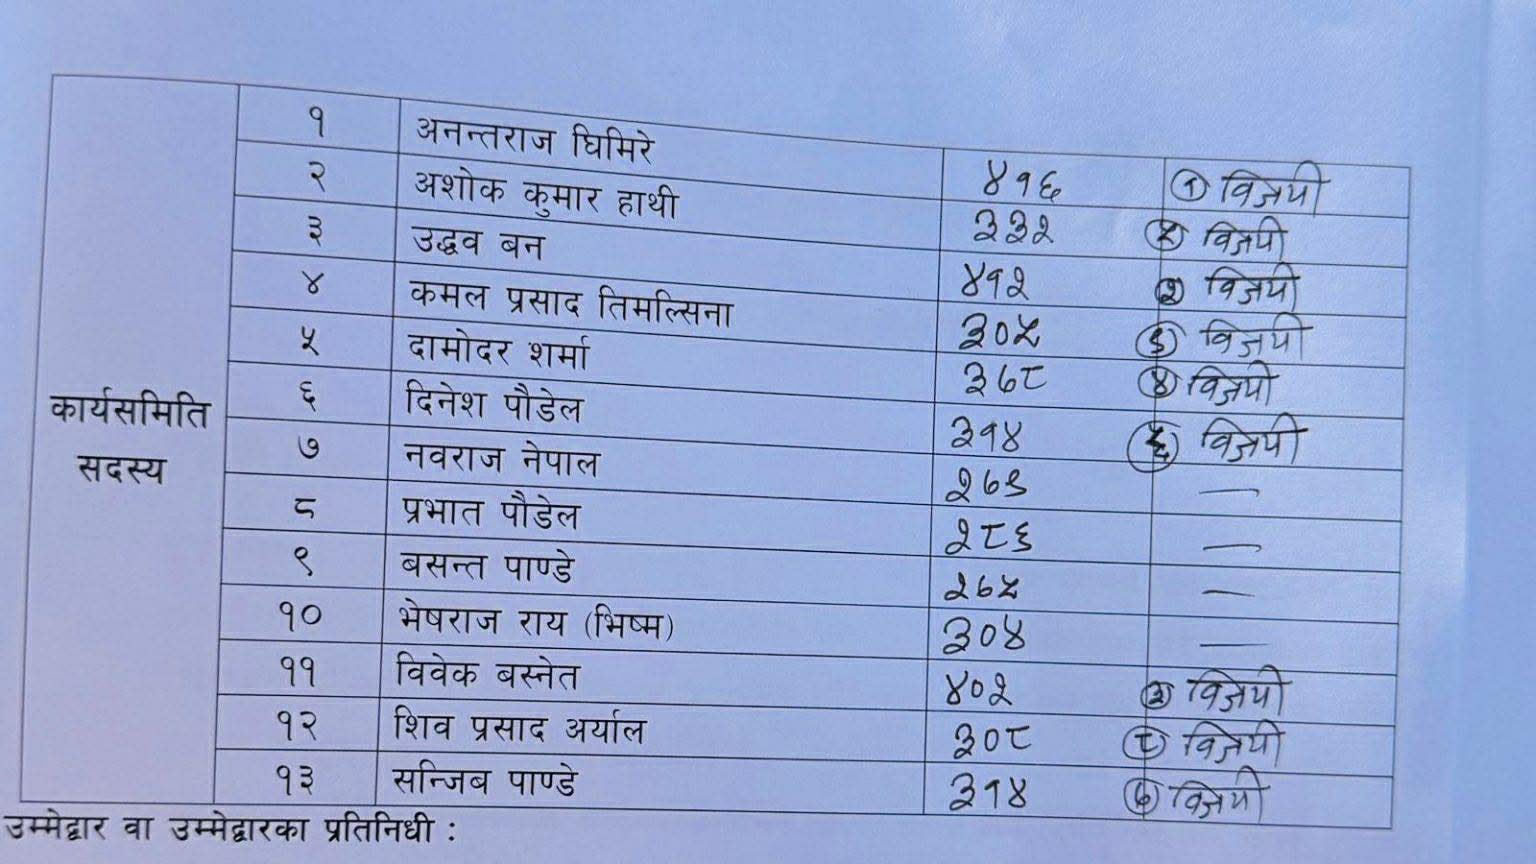 कार्यसमिति
सदस्य
१ अनन्तराज घिमिरे ४१६ ① विजयी
२ अशोक कुमार हाथी ३३२ ⑤ विजयी
३ उद्धव बन ४१२ ② विजयी
४ कमल प्रसाद तिमल्सिना ३०५ ⑨ विजयी
५ दामोदर शर्मा ३७८ ④ विजयी
६ दिनेश पौडेल ३१४ ⑥ विजयी
७ नवराज नेपाल २७९ —
८ प्रभात पौडेल २८६ —
९ बसन्त पाण्डे २७५ —
१० भेषराज राय (भिष्म) ३०४ —
११ विवेक बस्नेत ४०२ ③ विजयी
१२ शिव प्रसाद अर्याल ३०८ ⑧ विजयी
१३ सन्जिब पाण्डे ३१४ ⑦ विजयी
उम्मेद्वार वा उम्मेद्वारका प्रतिनिधी :